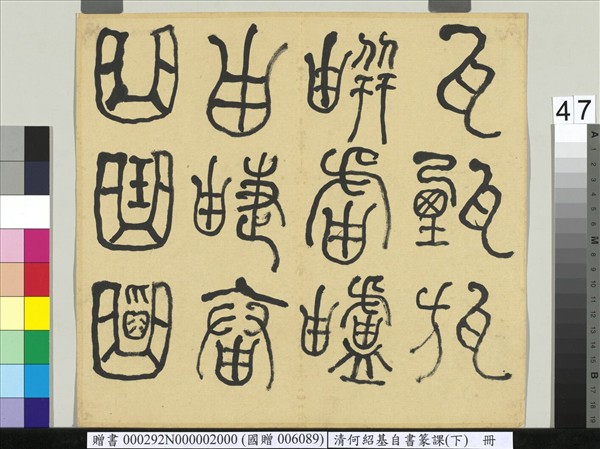 曲
甾疀畚
𧆨
瓦甄瓬
47
贈書 000292N000002000 (國贈 006089) 清何紹基自書篆課(下) 冊